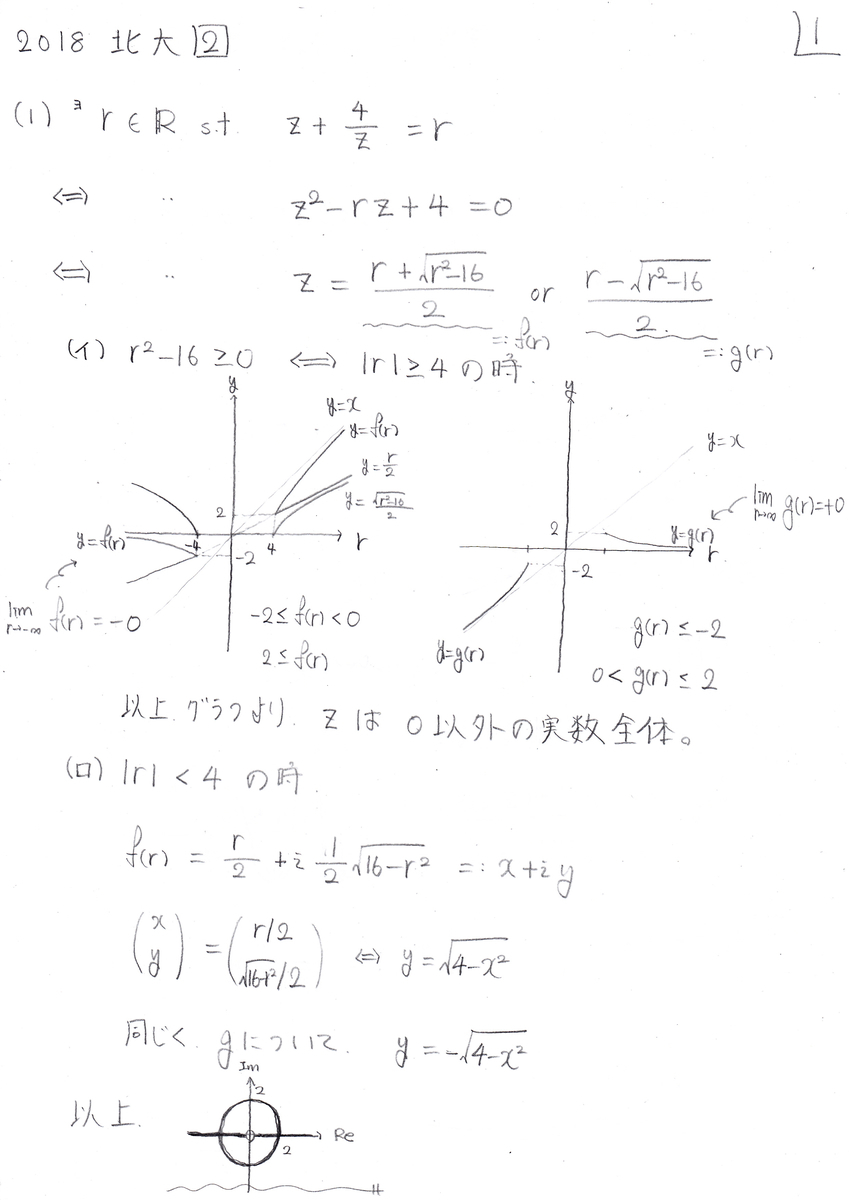 2018 北大 2
1
(1) ∃r∈R s.t. z + 4/z = r
⇔ 〃 z² - rz + 4 = 0
⇔ 〃 z = (r + √(r²-16))/2 or (r - √(r²-16))/2
=: f(r) =: g(r)
(イ) r²-16 ≥ 0 ⇔ |r| ≥ 4 の時.
y
y=x
y=f(r)
y=r/2
y=√(r²-16)/2
2
y=f(r)
-4
-2
4
r
lim r→-∞ f(r) = -0
-2 ≤ f(r) < 0
2 ≤ f(r)
y
y=x
lim r→∞ g(r)=+0
2
y=g(r)
r
-2
y=g(r)
g(r) ≤ -2
0 < g(r) ≤ 2
以上 グラフより. zは 0以外の実数全体。
(ロ) |r| < 4 の時.
f(r) = r/2 + i 1/2 √(16-r²) =: x+iy
(x y) = (r/2 √(16-r²)/2) ⇔ y = √(4-x²)
同じく. gについて. y = -√(4-x²)
以上.
Im
2
Re
2